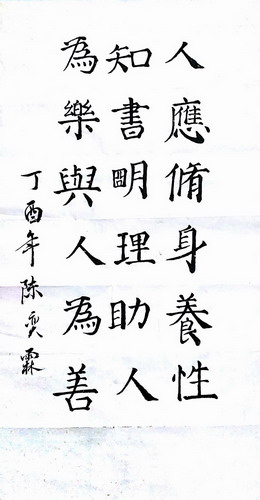 人應脩身養性
知書明理助人
為樂與人為善
丁酉年陳奕霖